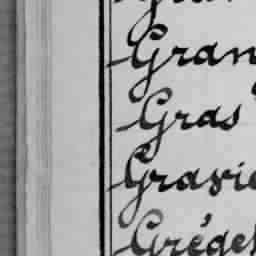 Gran
Gras
Gravie
Gréges